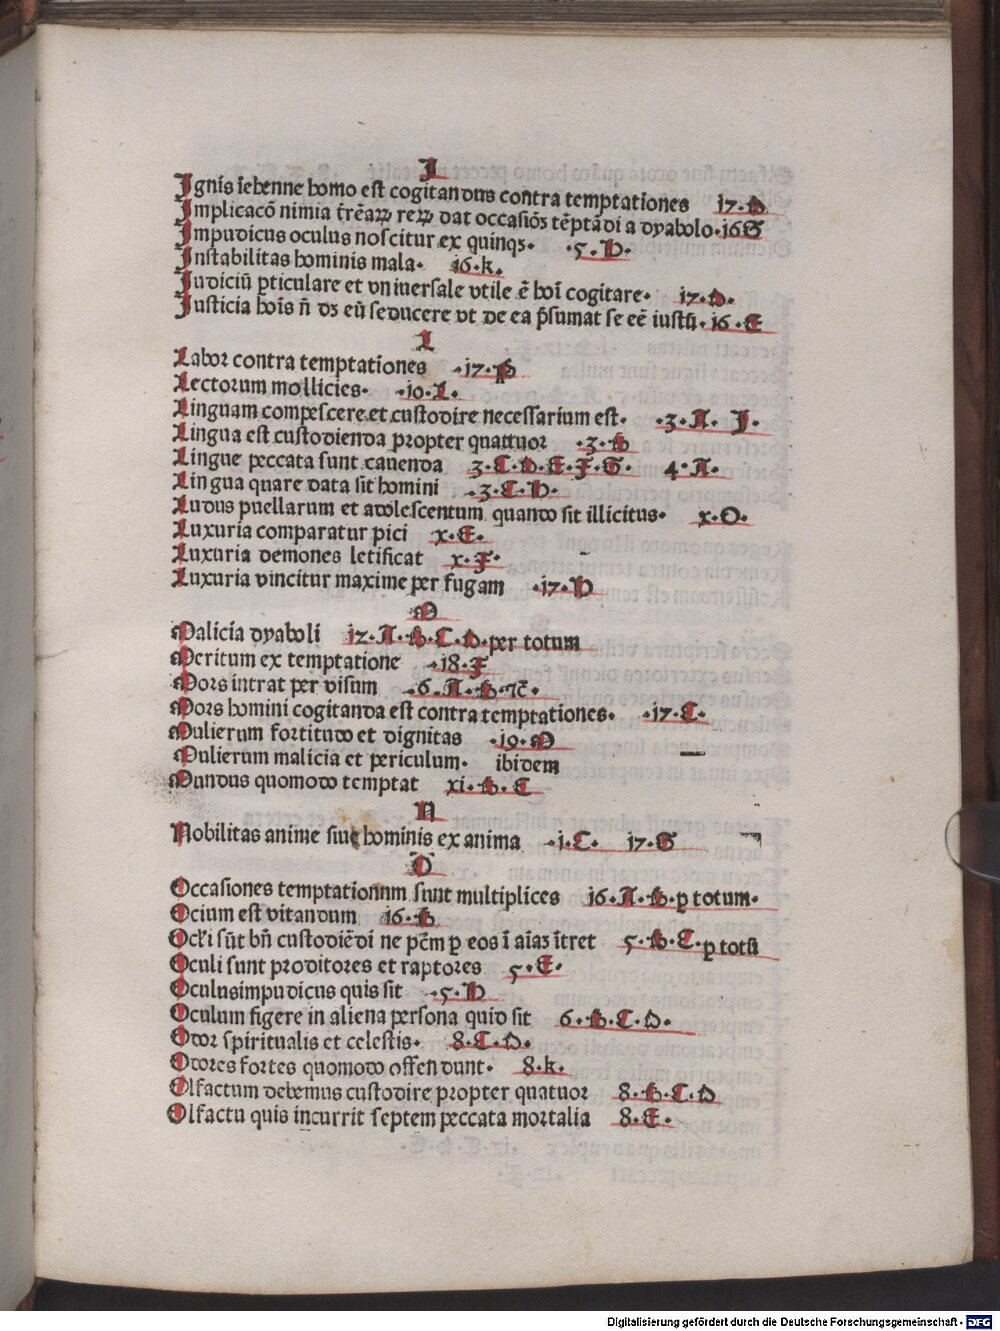 I
Ignis iebenne homo est cogitandus contra temptationes 17·D
Implicacō nimia t̄rēaꝝ reꝝ dat occasiōꝫ tēptādi a dyabolo·16G
Impudicus oculus noscitur ex quinqꝫ· ·5·H·
Instabilitas hominis mala· 16·k·
Iudiciū ꝑticulare et vniuersale vtile ē hoī cogitare· 17·D·
Iusticia hoīs n̄ dꝫ eū seducere vt de ea p̄sumat se eē iustū·16·E
L
Labor contra temptationes ·17·P
Lectorum mollicies· ·10·L·
Linguam compescere et custodire necessarium est· ·3·A· I·
Lingua est custodienda propter quattuor ·3·B
Lingue peccata sunt cauenda 3·C·D·E·F·G· 4·A·
Lingua quare data sit homini ·3·C·H·
Ludus puellarum et adolescentum quando sit illicitus· x·O·
Luxuria comparatur pici x·E·
Luxuria demones letificat x·F·
Luxuria vincitur maxime per fugam ·17·H
M
Malicia dyaboli 12·A·B·C·D·per totum
Meritum ex temptatione ·18·F
Mors intrat per visum ·6·A·B·ꝛc̄·
Mors homini cogitanda est contra temptationes· ·17·C·
Mulierum fortitudo et dignitas ·19·M
Mulierum malicia et periculum· ibidem
Mundus quomodo temptat xi·B·C
N
Nobilitas anime siue hominis ex anima ·i·C· 17·G
O
Occasiones temptationnm sunt multiplices 16·A·B·ꝑ totum·
Ocium est vitandum 16·B
Ocƚi sūt bn̄ custodiēdi ne pc̄m ꝑ eos ī aīaꝫ ītret 5·B·C·ꝑ totū
Oculi sunt proditores et raptores 5·E·
Oculusimpudicus quis sit ·5·H
Oculum figere in aliena persona quid sit 6·B·C·D·
Odor spiritualis et celestis· 8·C·D·
Odores fortes quomodo offendunt· 8·k·
Olfactum debemus custodire propter quatuor 8·B·C·D
Olfactu quis incurrit septem peccata mortalia 8·E·
Digitalisierung gefördert durch die Deutsche Forschungsgemeinschaft - DFG